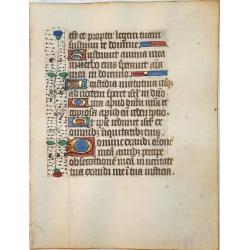 est et propter legem tuam
sustinui te domine
Sustinuit anima mea
in verbo eius speravit aīa
mea in domino
A custodia matutina usqꝫ
ad noctem speret isrł in dño
Quia apud dñm mīa et
copiosa apud eū redemptio
Et ipse redimet isrł ex
omnibꝫ iniquitatibꝫ eius
Domine exaudi orōnē
meā auribꝫ percipe
obsecrationē meā in veritate
tua exaudi me ī tua iusticia